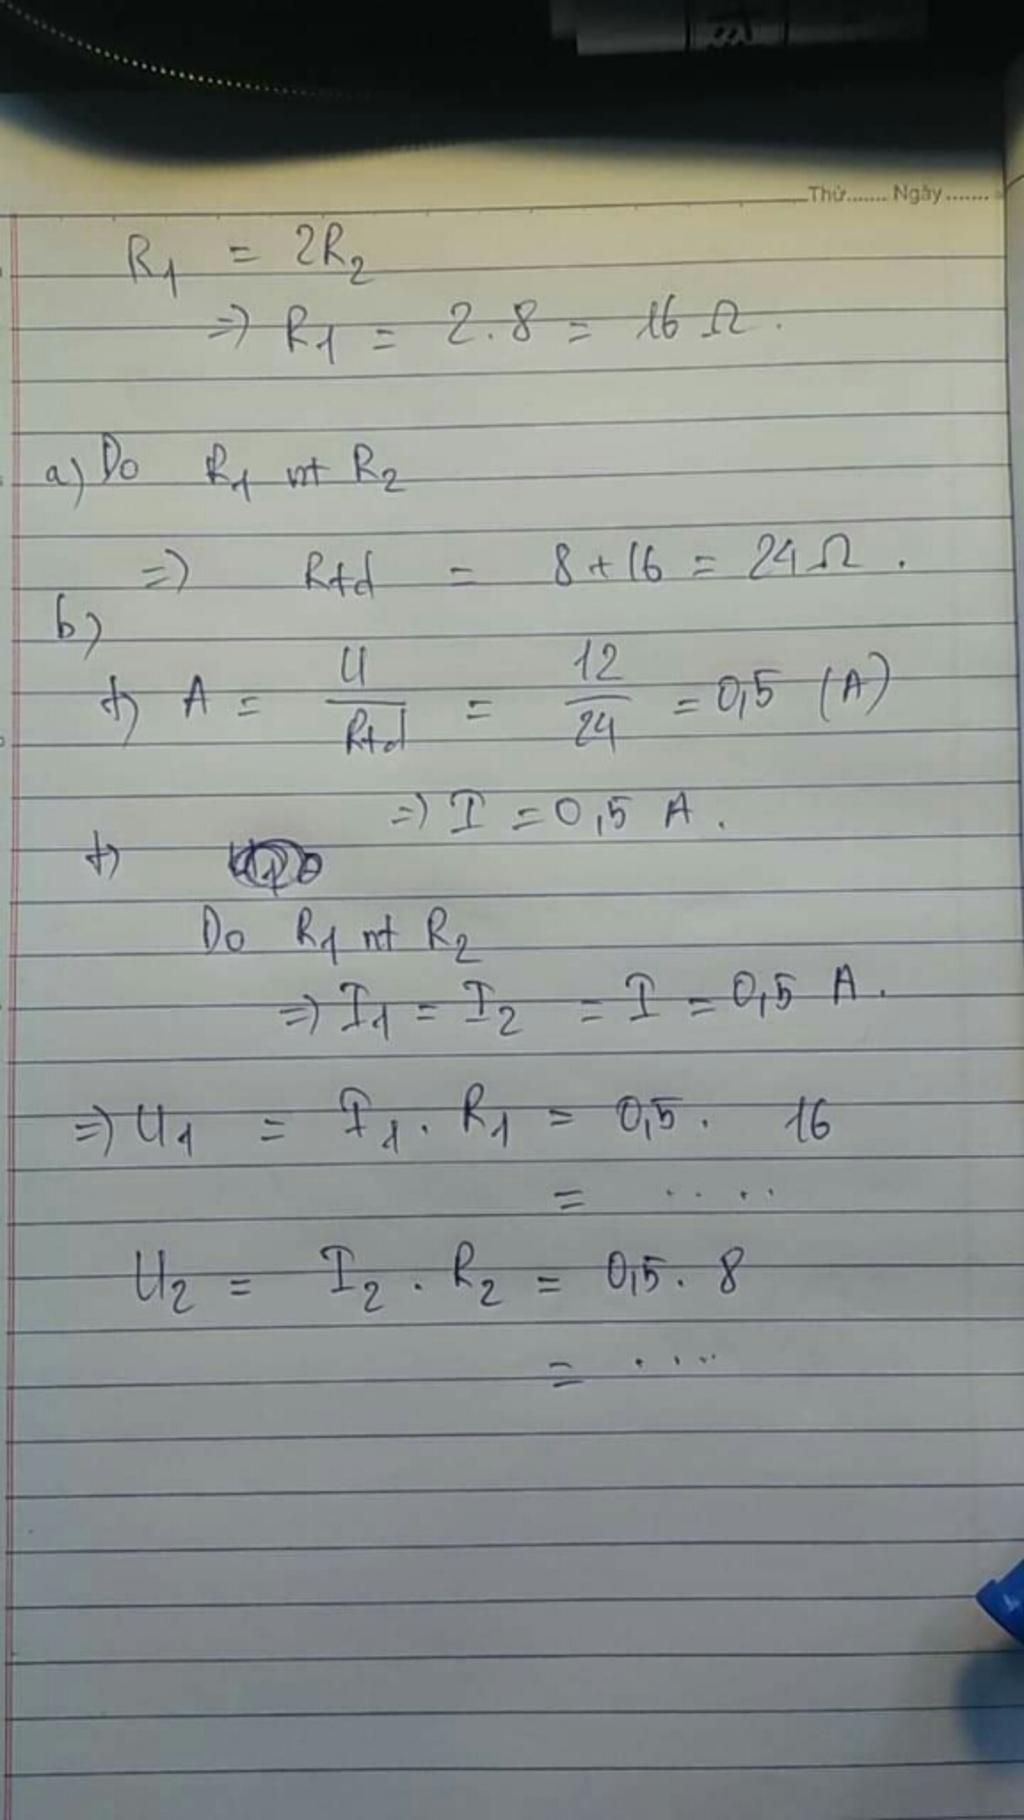 Thứ....... Ngày.......
R1 = 2R2
=> R1 = 2.8 = 16 Ω.
a) Do R1 nt R2
=> Rtd = 8 + 16 = 24 Ω.
b)
+) A = U/Rtd = 12/24 = 0,5 (A)
=> I = 0,5 A.
+)
Do R1 nt R2
=> I1 = I2 = I = 0,5 A.
=> U1 = I1. R1 = 0,5. 16
= ....
U2 = I2. R2 = 0,5. 8
= ....